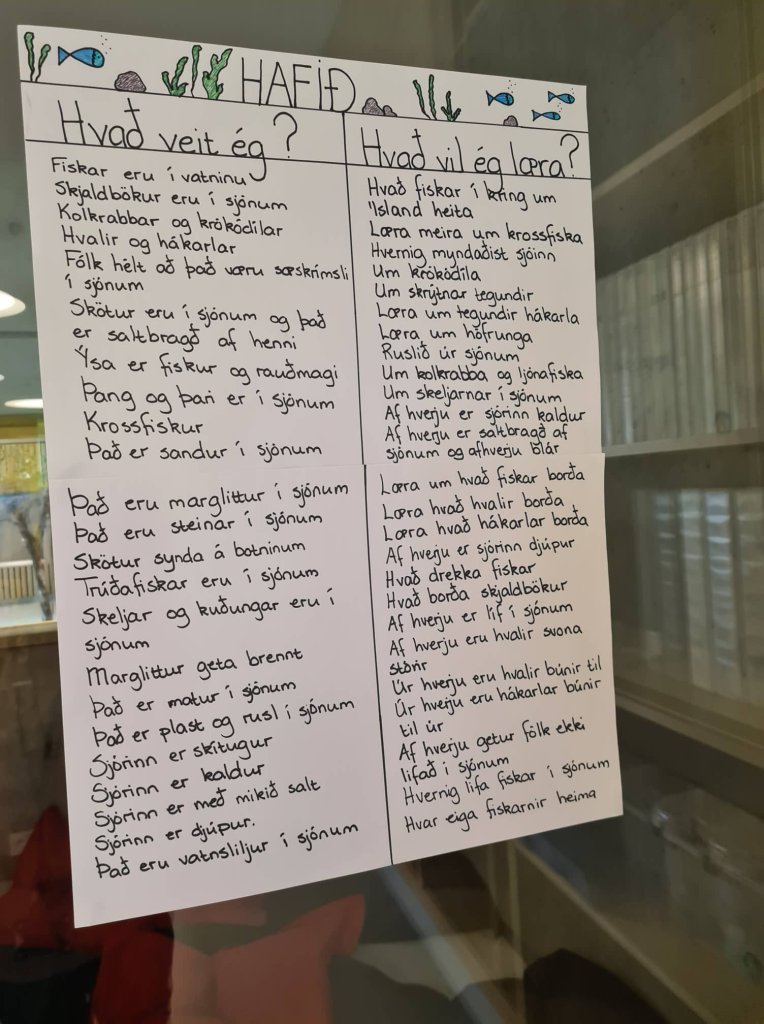 HAFIÐ
Hvað veit ég?
Fiskar eru í vatninu
Skjaldbökur eru í sjónum
Kolkrabbar og krókódílar
Hvalir og hákarlar
Fólk hélt að það væru sæskrímsli
í sjónum
Skötur eru í sjónum og það
er saltbragð af henni
Ýsa er fiskur og rauðmagi
Þang og þari er í sjónum
Krossfiskur
Það er sandur í sjónum
Það eru marglittur í sjónum
Það eru steinar í sjónum
Skötur synda á botninum
Trúðafiskar eru í sjónum
Skeljar og kuðungar eru í
sjónum
Marglittur geta brennt
Það er matur í sjónum
Það er plast og rusl í sjónum
Sjórinn er skítugur
Sjórinn er kaldur
Sjórinn er með mikið salt
Sjórinn er djúpur.
Það eru vatnsliljur í sjónum
Hvað vil ég læra?
Hvað fiskar í kring um
Ísland heita
Læra meira um krossfiska
Hvernig myndaðist sjóinn
Um krókódíla
Um skrýtnar tegundir
Læra um tegundir hákarla
Læra um höfrunga
Ruslið úr sjónum
Um kolkrabba og ljónafiska
Um skeljarnar í sjónum
Af hverju er sjórinn kaldur
Af hverju er saltbragð af
sjónum og afhverju blár
Læra um hvað fiskar borða
Læra hvað hvalir borða
Læra hvað hákarlar borða
Af hverju er sjórinn djúpur
Hvað drekka fiskar
Hvað borða skjaldbökur
Af hverju er líf í sjónum
Af hverju eru hvalir svona
stórir
Úr hverju eru hvalir búnir til
Úr hverju eru hákarlar búnir
til úr
Af hverju getur fólk ekki
lifað í sjónum
Hvernig lifa fiskar í sjónum
Hvar eiga fiskarnir heima